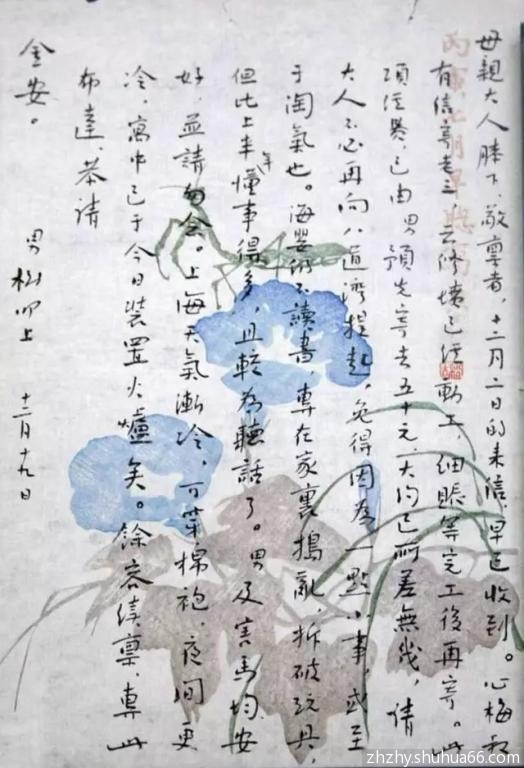 母親大人膝下，敬稟者，十二月二日的来信，早已收到。心梅叔
有信寄老三，云修墳已经動工，細賬等完工後再寄。此
項经費，已由男預先寄去五十元，大约已所差無幾，请
大人不必再向八道湾提起，免得因為一點小事，或至
于淘氣也。海嬰仍不讀書，專在家裏搗亂，拆破玩具，
但比上半年懂事得多，且較為聽話了。男及害馬均安
好，並請勿念。上海天氣漸冷，可穿棉袍，夜間更
冷，寓中已于今日裝置火爐矣。餘容续禀，專此
布達，恭请
金安。
男 樹 叩上 十二月十九日
丙寅七月早
zhzhy.shuhua66.com